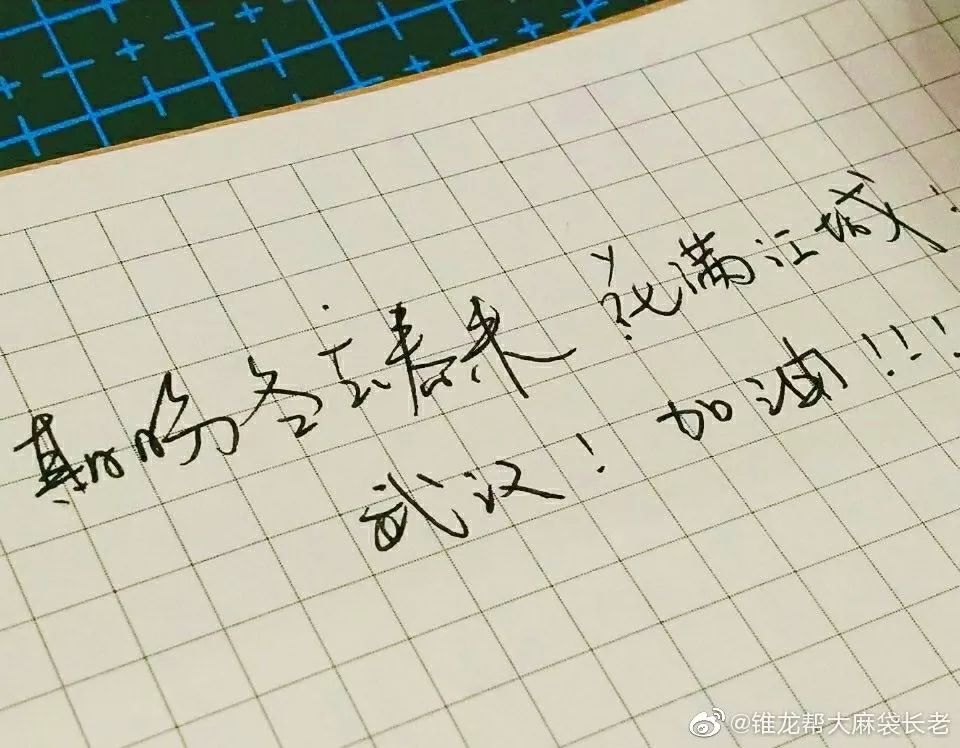 期盼冬去春来 花满江城!
武汉!加油!!!
@锥龙帮大麻袋长老